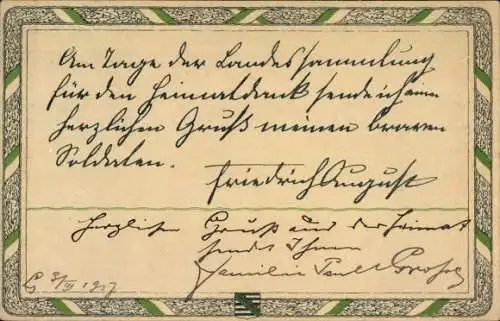 Am Tage der Landessammlung
für den Heimatdank sende ich einen
herzlichen Gruß meinen braven
Soldaten.
Friedrich August
Herzlichen Gruß aus der Heimat
sendet Ihnen
Familie Paul Große
1917